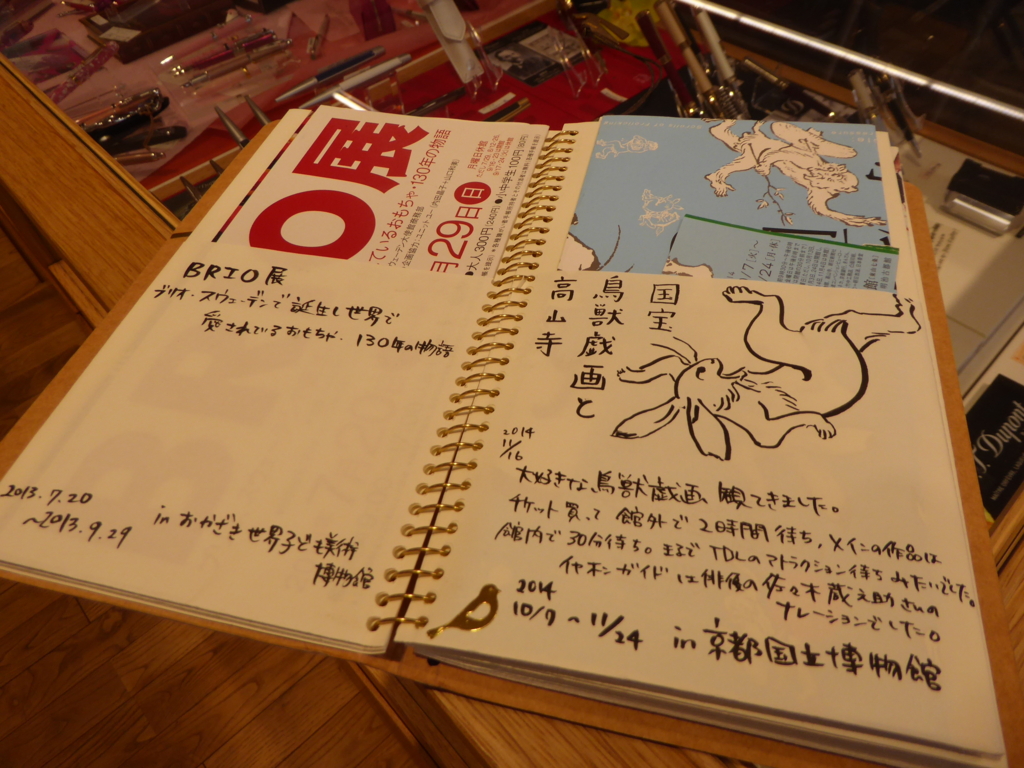 展
ているおもちゃ・130年の物語
月29日(日)
月曜日休館
●大人300円(240円)●小中学生100円(80円)
BRIO展
ブリオ・スウェーデンで誕生し世界で
愛されているおもちゃ・130年の物語
2013.7.20
～2013.9.29
in おかざき世界子ども美術
博物館
/7(火)～
24(月・休)
館
国宝
鳥獣戯画と
高山寺
2014
11/16
大好きな鳥獣戯画、観てきました。
チケット買って館外で2時間待ち、メインの作品は
館内で30分待ち。まるでTDLのアトラクション待ちみたいでした。
イヤホンガイドは俳優の佐々木蔵之助さんの
ナレーションでした。
2014
10/7 ～ 11/24 in 京都国立博物館
S.T. Dupont